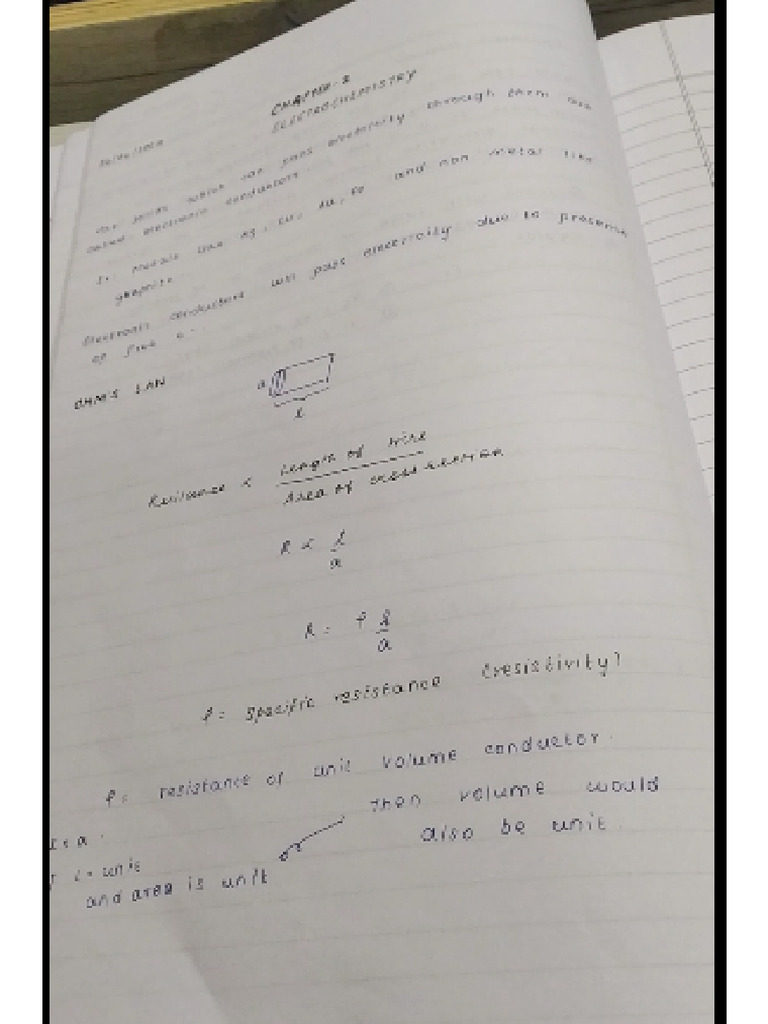 CHAPTER-2
ELECTROCHEMISTRY
which can pass electricity through them are
called electronic conductors
Ex: Metals like Ag, Cu, Au, Fe and non metal like
graphite.
Electronic conductors will pass electricity due to presence
of free e-.
OHM'S LAW
a
l
Resistance ∝ Length of wire
Area of cross section
R ∝ l
a
R = ρ l
a
ρ = specific resistance (resistivity)
ρ = resistance of unit volume conductor.
l = unit
and area is unit
then volume would
also be unit.